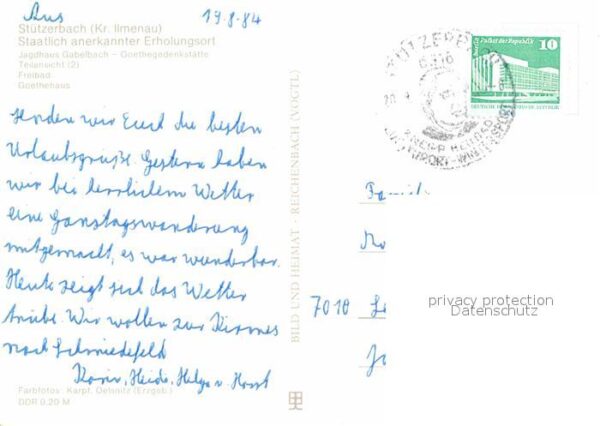 Aus 19.8.84
Stützerbach (Kr. Ilmenau)
Staatlich anerkannter Erholungsort
Jagdhaus Gabelbach – Goethegedenkstätte
Teilansicht (2)
Freibad
Goethehaus
senden wir Euch die besten
Urlaubsgrüße. Gestern haben
wir bei herrlichem Wetter
eine Ganztagswanderung
mitgemacht, es war wunderbar.
Heute zeigt sich das Wetter
trübe. Wir wollen zur Kirmes
nach Schmiedefeld
Karin, Heide, Helga u. Horst
Farbfotos: Karpf, Oelsnitz (Erzgeb.)
DDR 0,20 M
BILD UND HEIMAT · REICHENBACH (VOGTL)
Palast der Republik
10
7010
privacy protection
Datenschutz